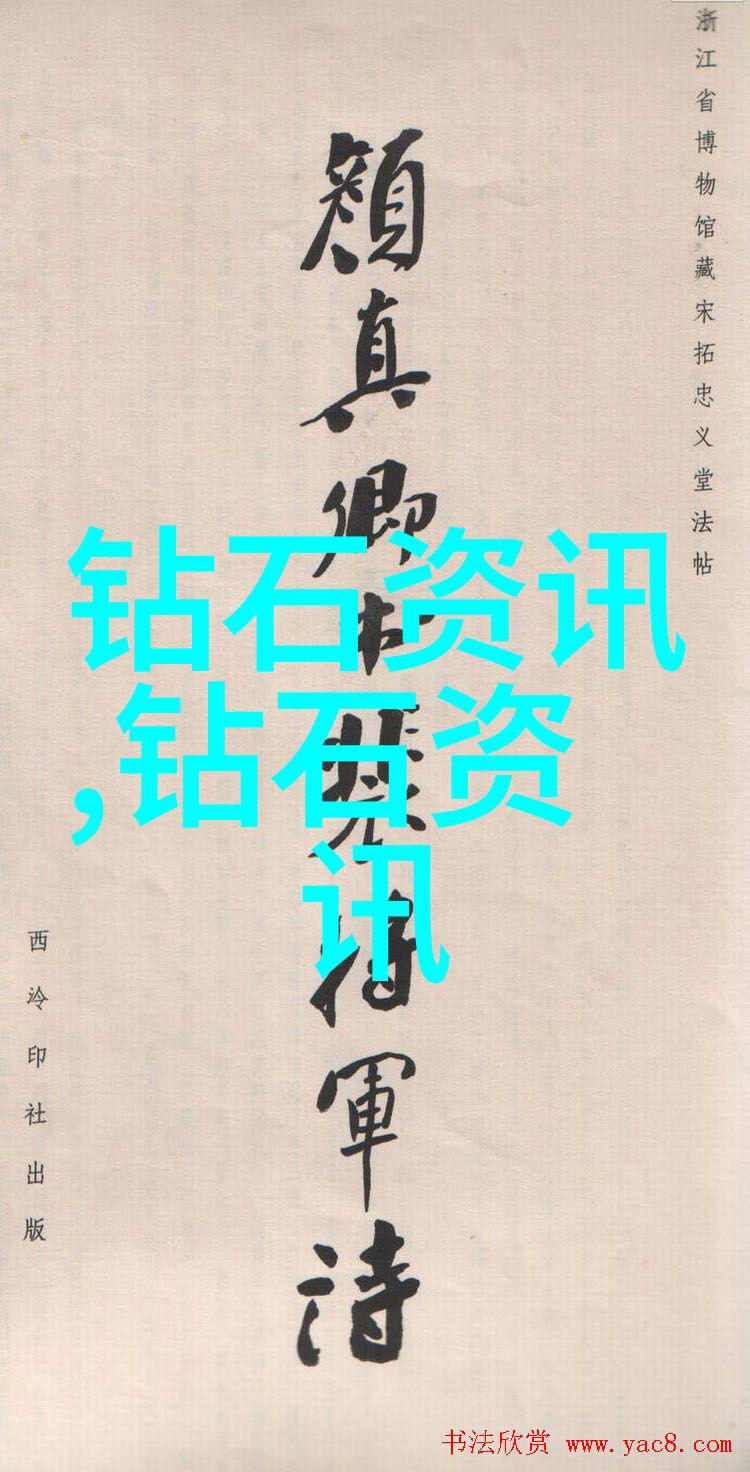 浙江省博物馆藏宋拓忠义堂法帖
顔真卿书裴将軍诗
钻石资讯
,钻石资
讯
西泠印社出版
书法欣赏 www.yac8.com